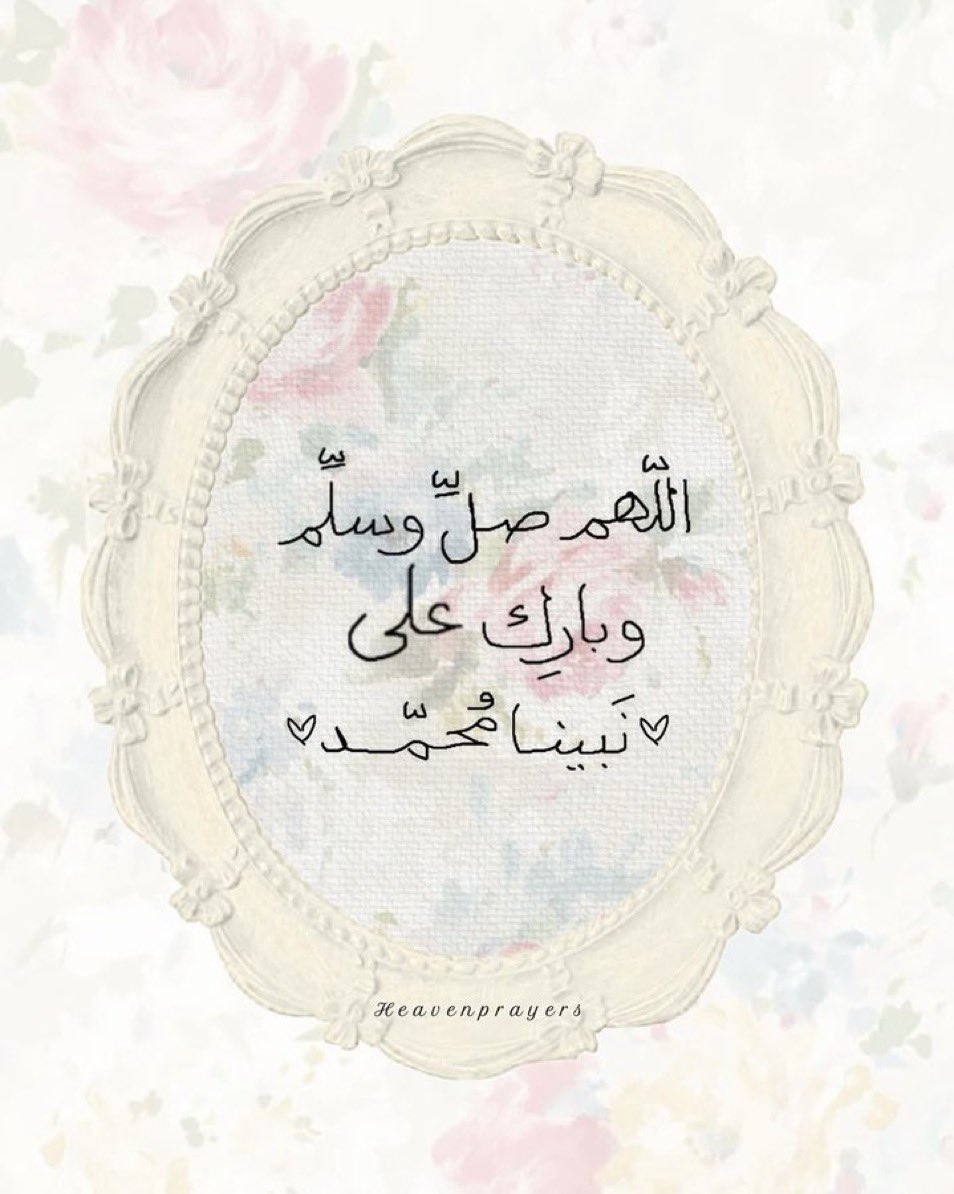 اللّهم صلِّ وسلّم
وبارِك على
♡نَبينـا مُحمّـــد♡
Heavenprayers